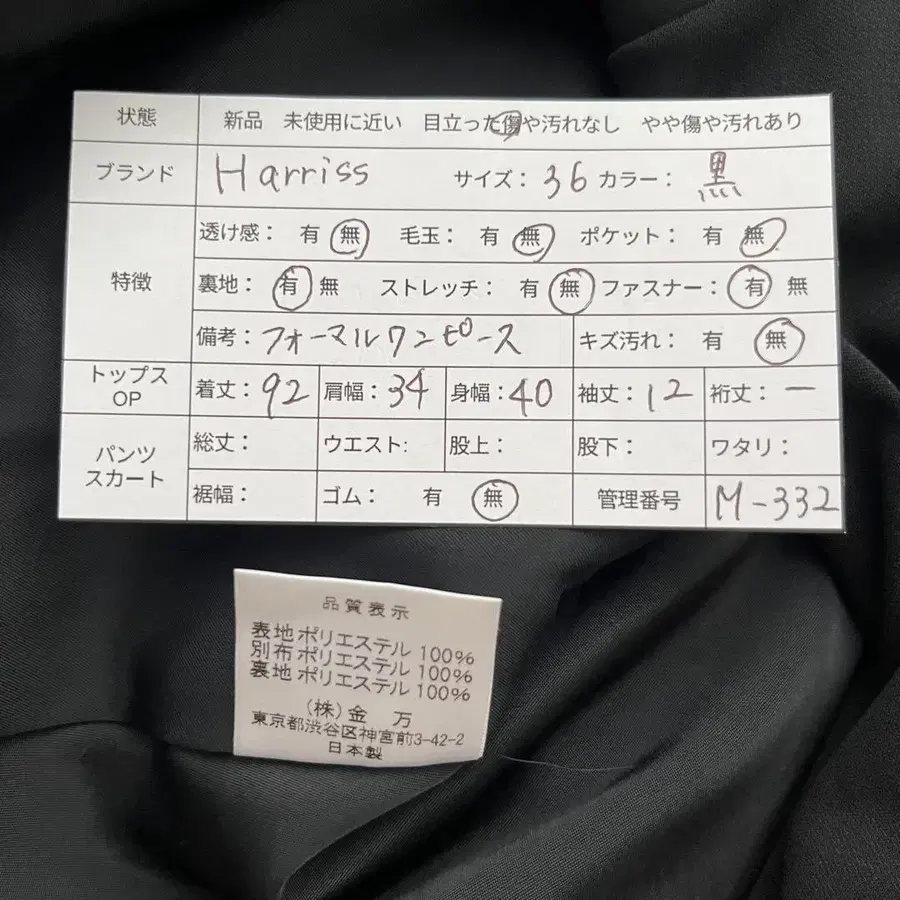 状態 新品 未使用に近い 目立った傷や汚れなし やや傷や汚れあり
ブランド Harriss サイズ： 36 カラー： 黒
特徴
透け感： 有 無 毛玉： 有 無 ポケット： 有 無
裏地： 有 無 ストレッチ： 有 無 ファスナー： 有 無
備考： フォーマルワンピース キズ汚れ： 有 無
トップス
OP
着丈： 92 肩幅： 34 身幅： 40 袖丈： 12 裄丈： ー
パンツ
スカート
総丈： ウエスト: 股上： 股下： ワタリ：
裾幅： ゴム： 有 無 管理番号 M-332
品質表示
表地 ポリエステル 100%
別布 ポリエステル 100%
裏地 ポリエステル 100%
(株) 金 万
東京都渋谷区神宮前3-42-2
日本製